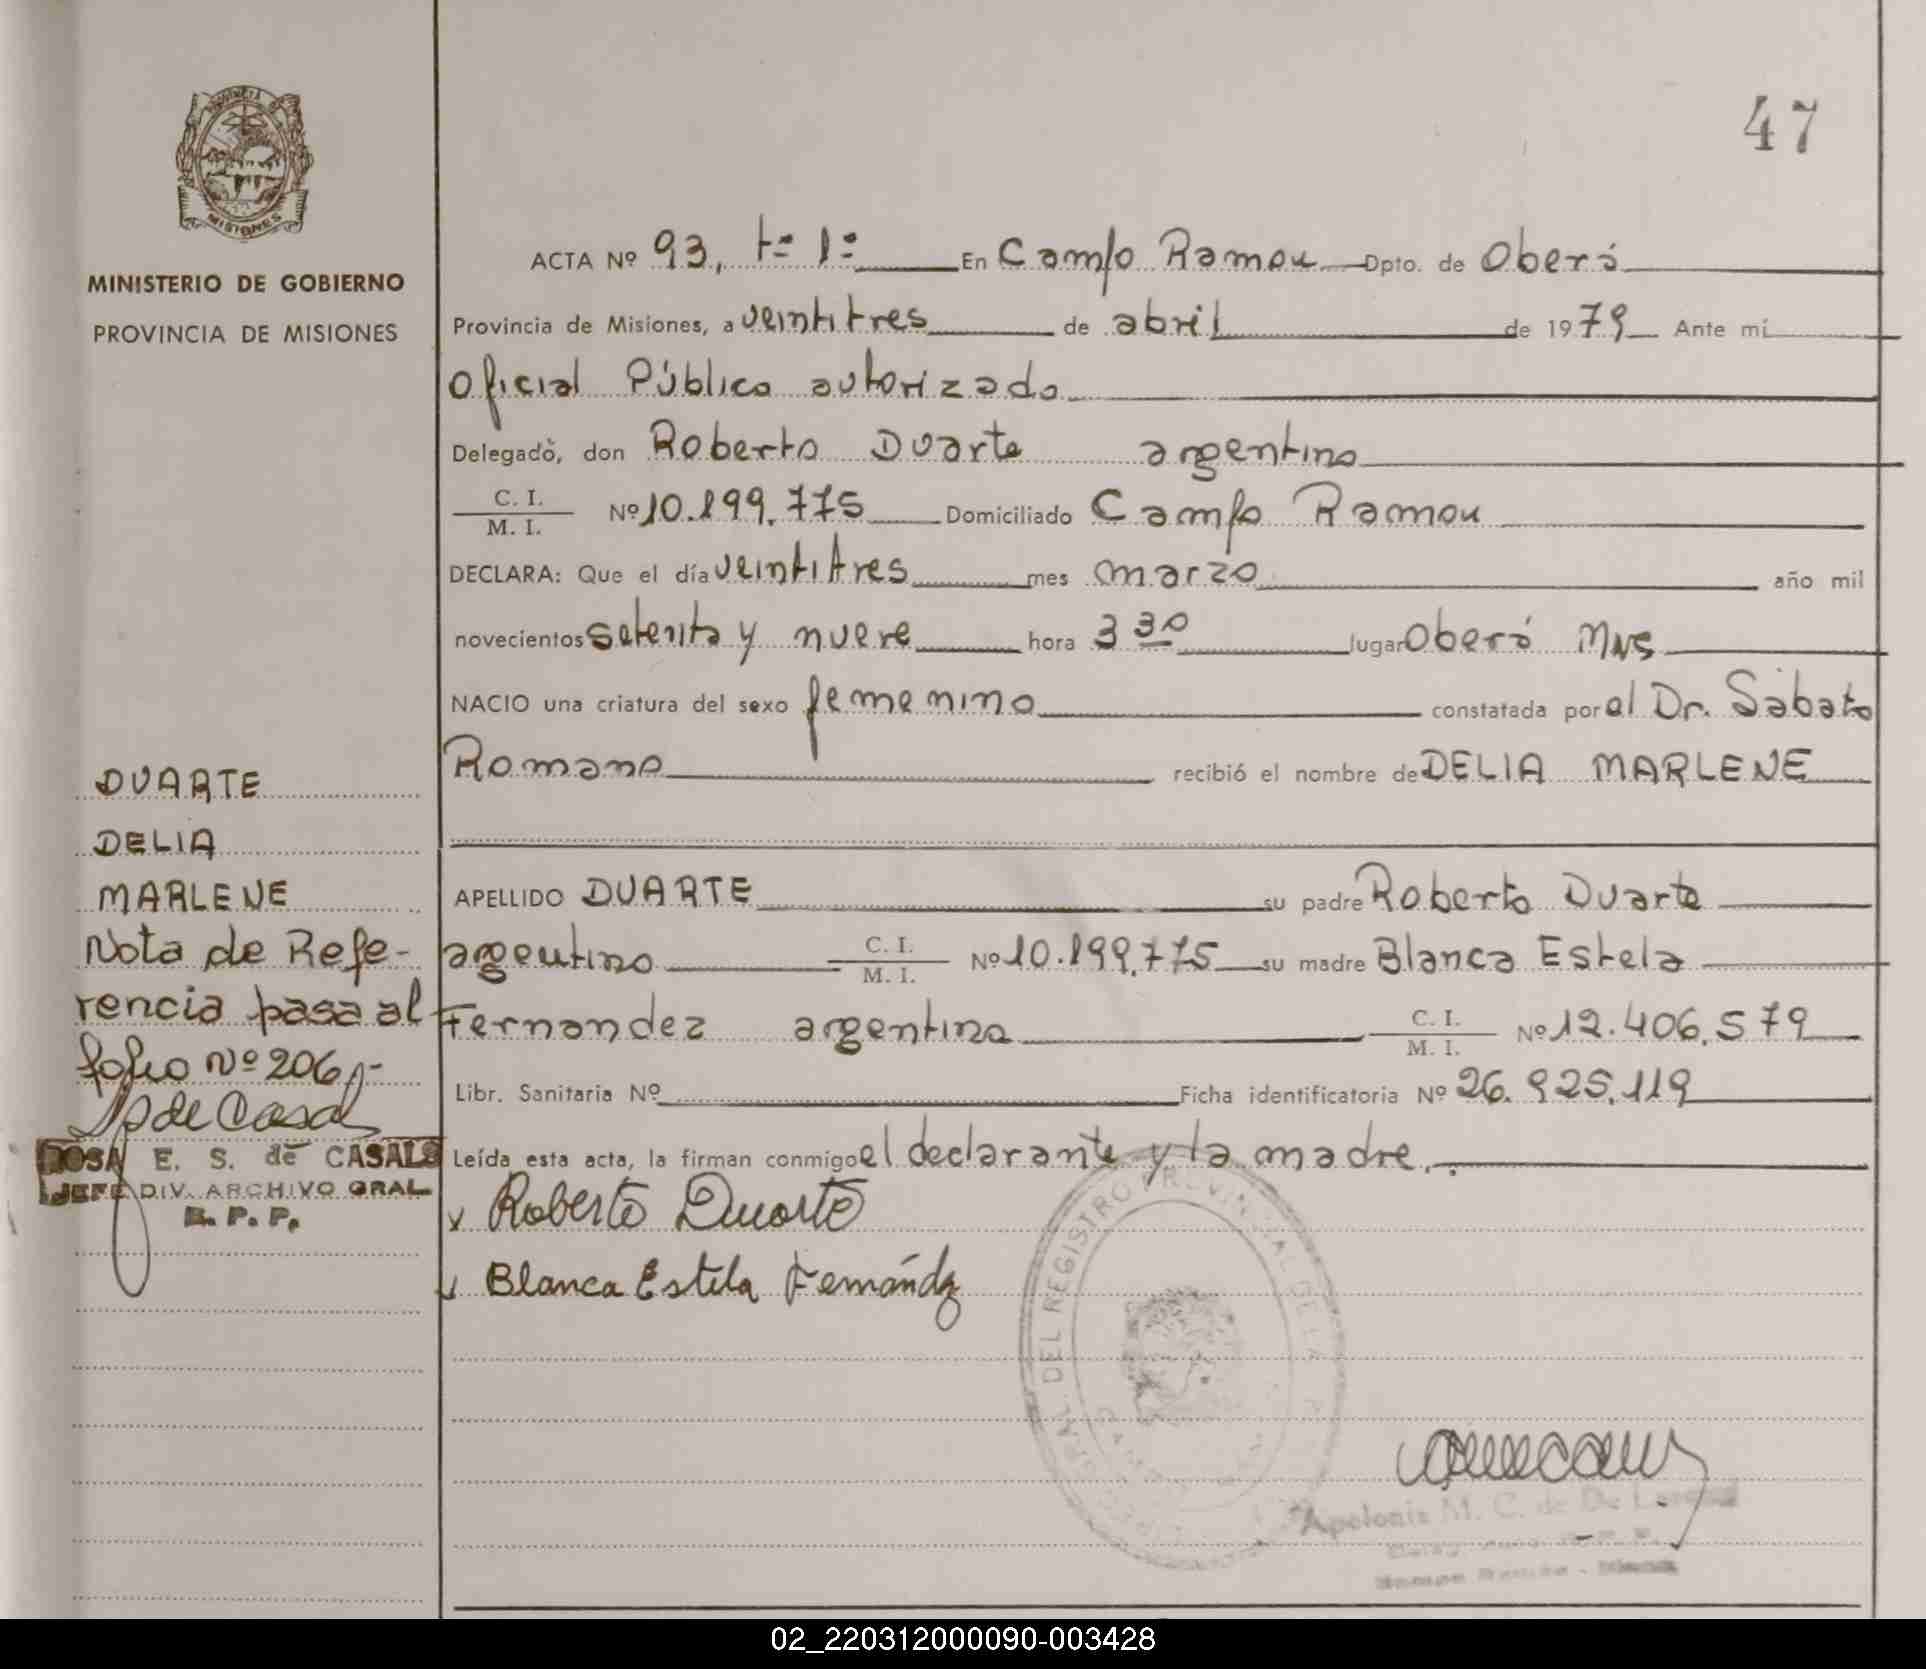 47
PROVINCIA DE
MISIONES
MINISTERIO DE GOBIERNO
PROVINCIA DE MISIONES
ACTA Nº 93, tº 1º En Campo Ramon Dpto. de Oberá
Provincia de Misiones, a veintitres de abril de 1979 Ante mí
Oficial Público autorizado
Delegado, don Roberto Duarte argentino
C. I.
M. I. Nº 10.199.775 Domiciliado Campo Ramon
DECLARA: Que el día veintitres mes marzo año mil
novecientos setenta y nueve hora 3 30 lugar Oberá Mns
NACIO una criatura del sexo femenino constatada por el Dr. Sábato
Romano recibió el nombre de DELIA MARLENE
APELLIDO DUARTE su padre Roberto Duarte
argentino C. I. M. I. Nº 10.199.775 su madre Blanca Estela
Fernandez argentina C. I. M. I. Nº 12.406.579
Libr. Sanitaria Nº Ficha identificatoria Nº 26.925.119
Leída esta acta, la firman conmigo el declarante y la madre.
Roberto Duarte
Blanca Estela Fernández
DUARTE
DELIA
MARLENE
Nota de Refe-
rencia pasa al
folio Nº 206.-
de Casals
ROSA E. S. de CASALS
JEFE DIV. ARCHIVO GRAL.
R. P. P.
GRAL. DEL REGISTRO PROVINCIAL DE LA
Apolonia M. C. de De
02_220312000090-003428